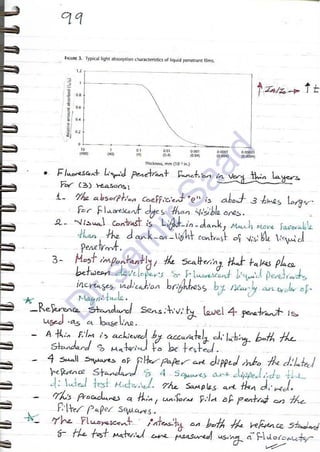 99
FIGURE 3. Typical light absorption characteristics of liquid penetrant films.
1.2
1
0.8
0.6
0.4
0.2
0
10
1
0.1
0.01
0.001
0.0001
0.00001
Relative amount absorbed
Thickness, mm
• Fluorescent Liquid Penetrant Function in very thin layers
For (3) reasons:
1- The absorption Coefficient "e" is about 3 times larger
for Fluorescent dyes than visible ones.
2- Visual Contrast is Light-in-dark, Much more favorable
than the dark-on-light contrast of visible liquid
penetrant.
3- Most importantly, the scattering that takes place
between developers & Fluorescent liquid penetrants
increases indication brightness by nearly an order of
Magnitude.
- Reference Standard Sensitivity Level 4 penetrant is
used as a baseline.
- A thin film is achieved by accurately diluting both the
Standard & Material to be tested.
- 4 Small Squares of Filter paper are dipped into the diluted
reference Standard & 4 Squares are dipped into the
diluted test Material. The Samples are then dried.
- This procedures a thin, uniform film of pentrant on the
Filter Paper Squares.
- The Fluorescent intensity on both the reference Standard
& the test Material are measured using a Fluorometer